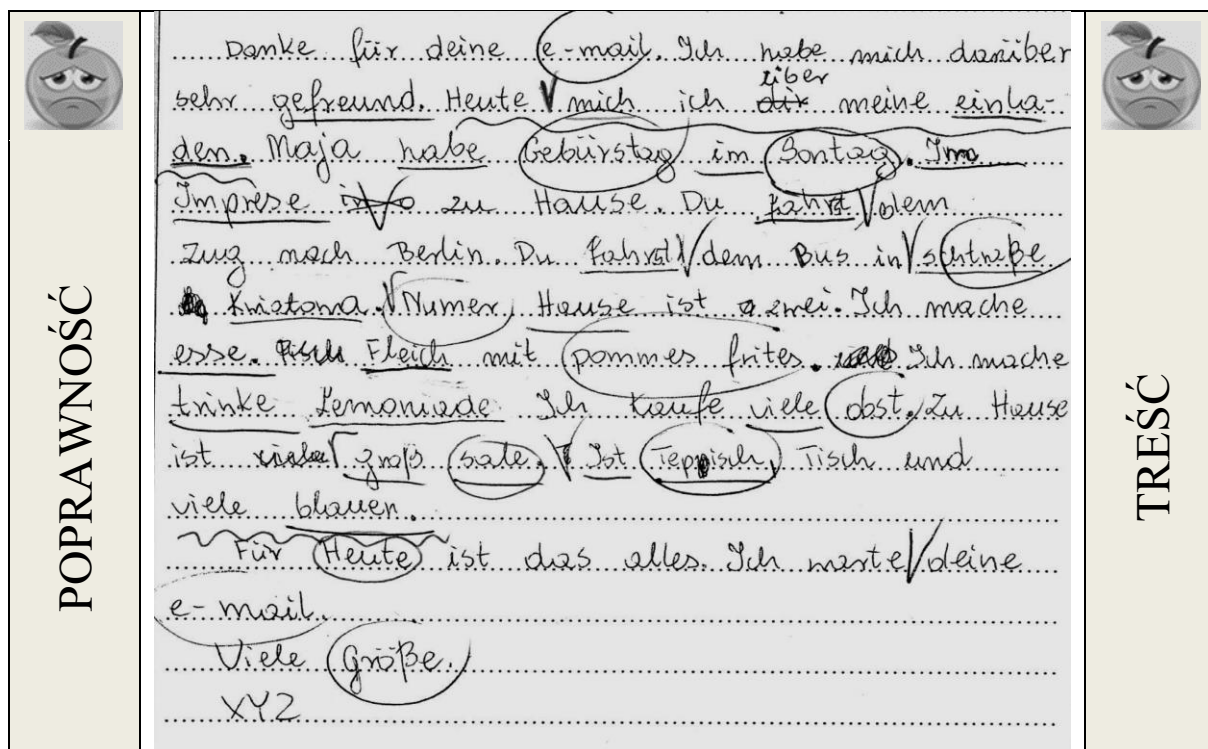 POPRAWNOŚĆ
Danke für deine e-mail. Ich habe mich darüber
über
sehr gefreund. Heute mich ich dir meine einla-
den. Maja habe Gebürstag im Sontag. Im
Imprese zu Hause. Du fahrst dem
Zug nach Berlin. Du fahrst dem Bus in schtraße
Kwiatowa. Numer Hause ist zwei. Ich mache
esse. Fleich mit pommes frites. Ich mache
trinke Lemoniade Ich kaufe viele obst. Zu Hause
ist groß sale. Ist Teppisch, Tisch und
viele blauen.
Für Heute ist das alles. Ich warte deine
e-mail.
Viele Größe.
XYZ
TREŚĆ